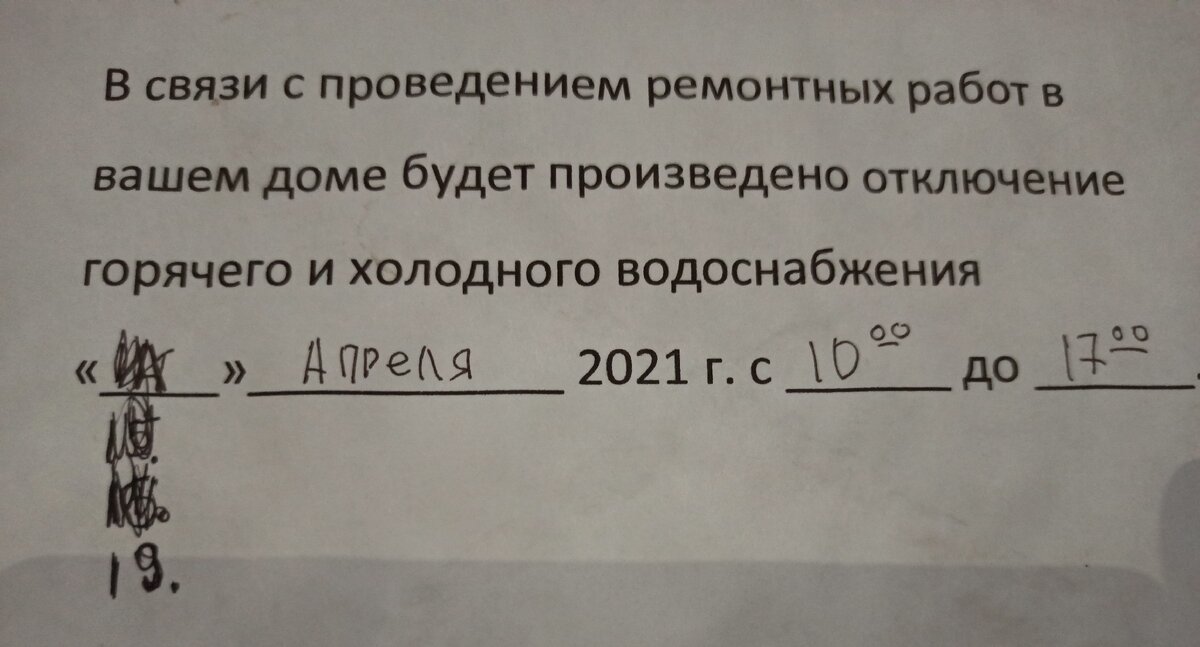 В связи с проведением ремонтных работ в
вашем доме будет произведено отключение
горячего и холодного водоснабжения
« » Апреля 2021 г. с 10 00 до 17 00.
19.